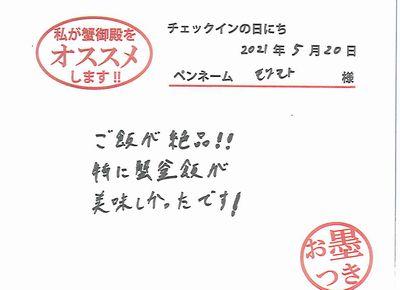 私が蟹御殿を
オススメ
します!!
チェックインの日にち
2021年5月20日
ペンネーム モリモト 様
ご飯が絶品!!
特に蟹釜飯が
美味しかったです!
お墨
つき